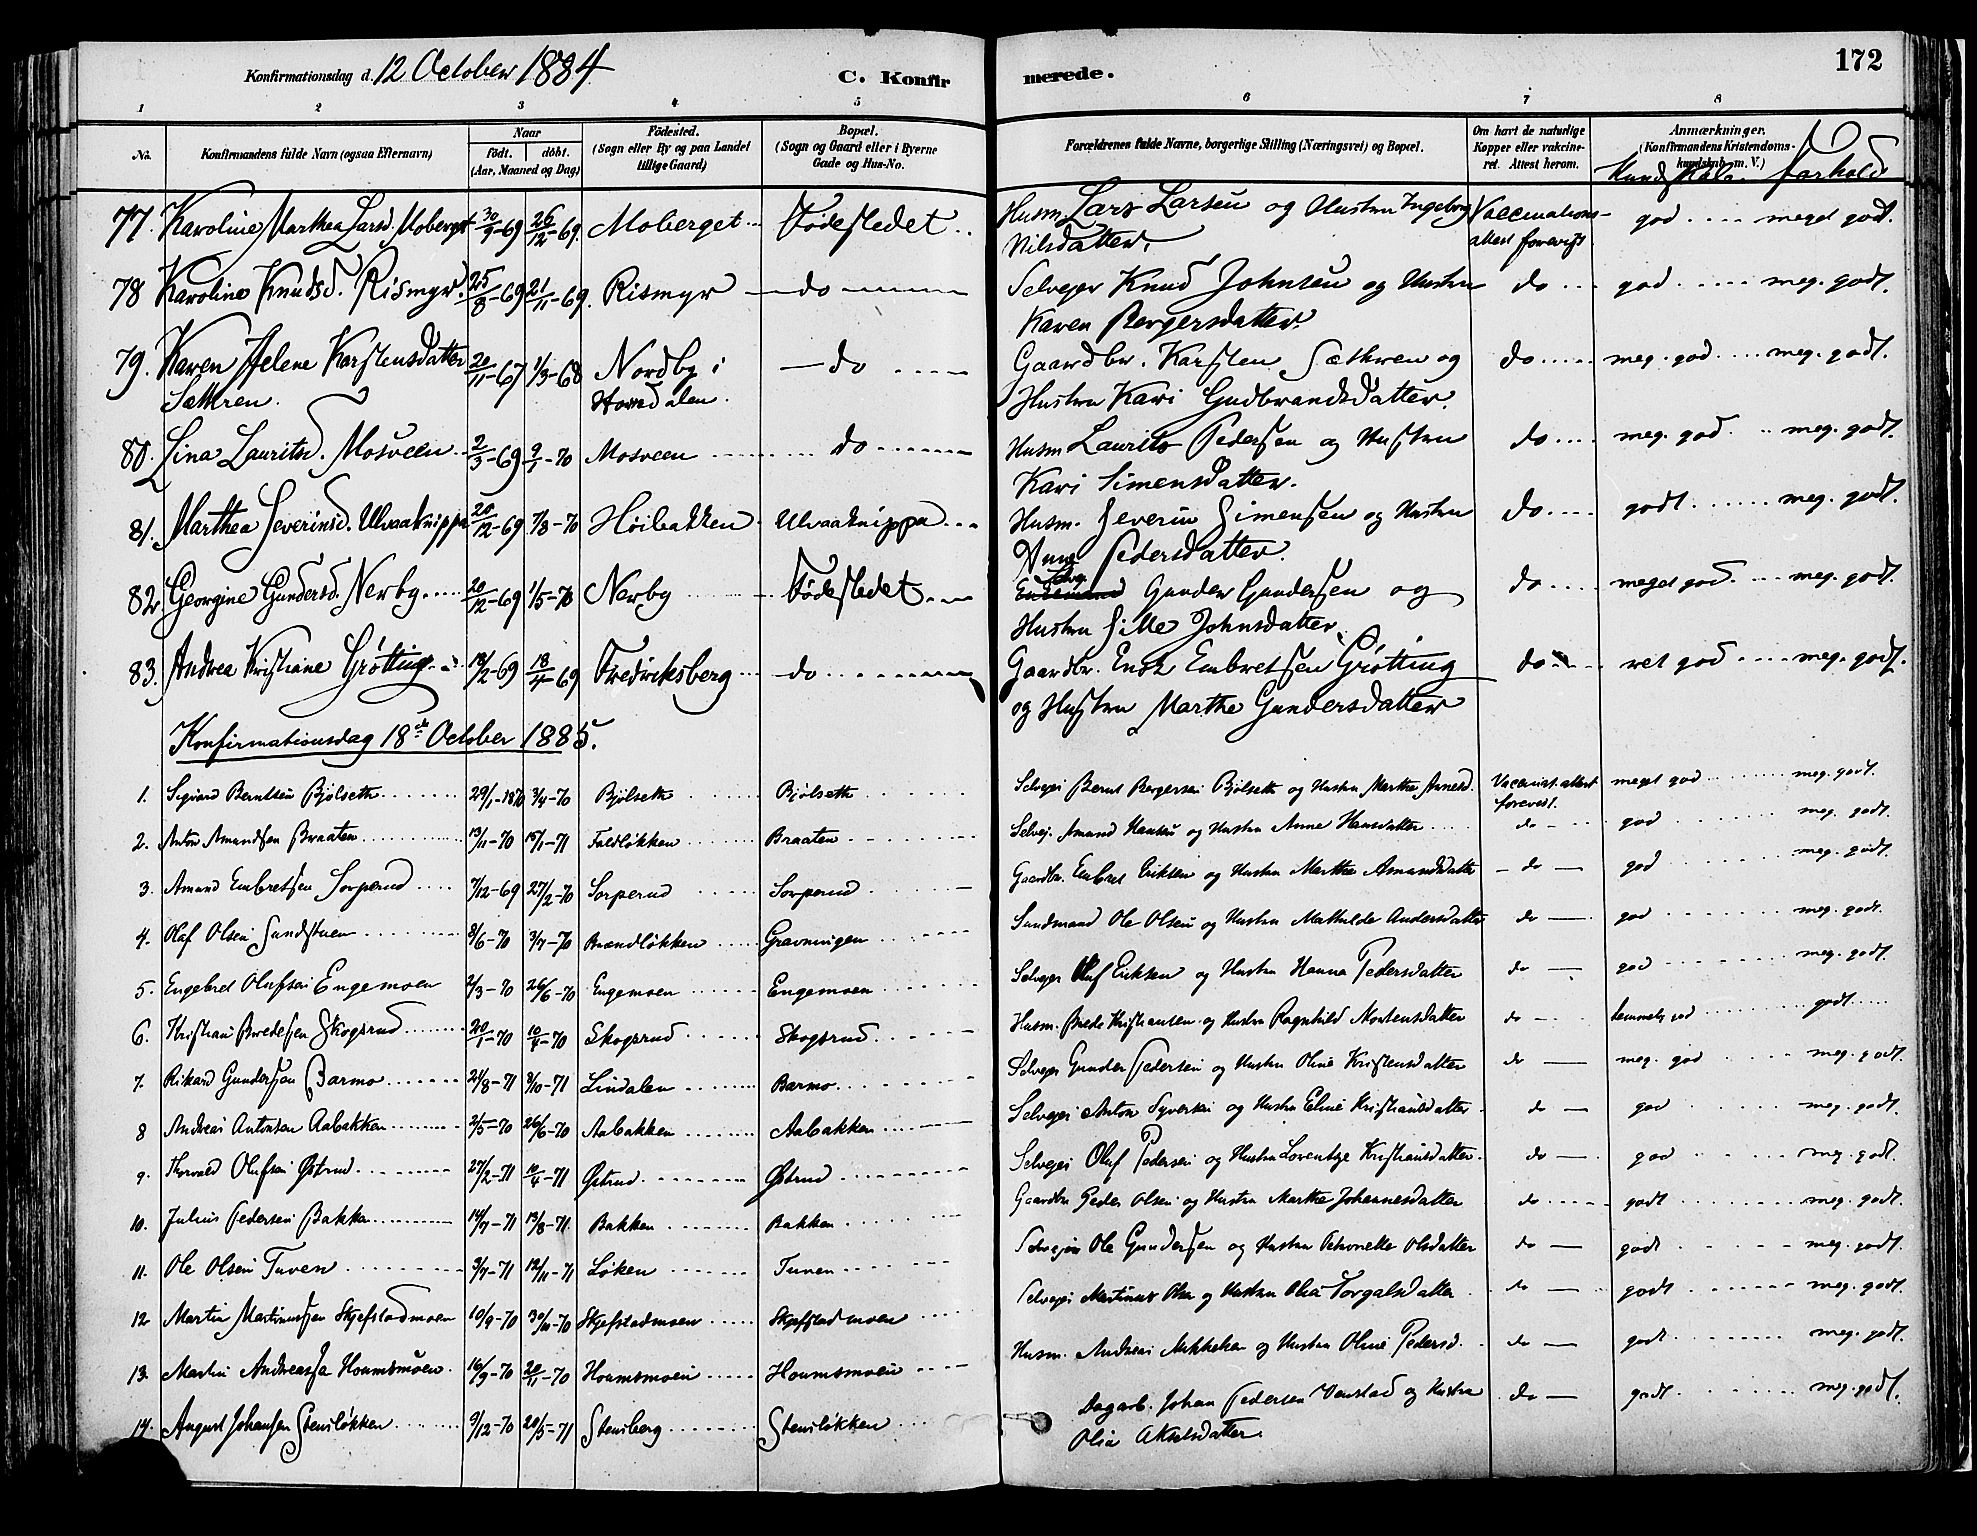 172
Konfirmationsdag d. 12 October 1884 C. Konfirmerede.
1 2 3 4 5 6 7 8
No. Konfirmandens fulde Navn (ogsaa Efternavn) Naar født. døbt. (Aar, Maaned og Dag) Födested. (Sogn eller By og paa Landet tillige Gaard) Bopæl. (Sogn og Gaard eller i Byerne Gade og Hus-No. Forældrenes fulde Navne, borgerlige Stilling (Næringsvei) og Bopæl. Om havt de naturlige Kopper eller vakcineret. Attest herom. Anmærkninger. (Konfirmandens Kristendomskundskab m. V.)
Kundskab. Forhold
77. Karoline Marthea Larsd. Moberget 30/9-69 26/12-69. Moberget Fødestedet Husm. Lars Larsen og Hustru Ingeborg Vaccinations- god meget godt.
Nilsdatter. attest forevist
78 Karoline Knudsd. Rismyr. 25/8-69 21/11-69. Rismyr do Selveier Knud Johnsen og Hustru do god meg. godt.
Karen Bergersdatter.
79. Karen Helene Karstensdatter 20/11-67 1/3-68 Nordby i do Gaardbr. Karsten Sæthren og do meg. god meg. godt.
Sæthren. Hustru Kari Gudbrandsdatter.
80. Lina Lauritsd. Mosveen 2/3-69 9/1-70 Mosveen do Husm. Laurits Pedersen og Hustru do meg. god meg. godt.
Kari Simensdatter.
81. Marthea Severinsd. Ulvaaknippa 20/12-69 7/8-70 Høibakken Ulvaaknippa Husm. Severin Simensen og Hustru do godt meg. godt.
Anne Pedersdatter.
82. Georgine Gundersd. Nerby 20/12-69 1/5-70 Nerby Fødestedet Selvg. Gunder Gundersen og do meget god meg. godt.
Hustru Sille Johnsdatter.
83. Andrea Kristiane Grøtting 18/2-69 18/4-69 Fredriksberg do Gaardbr. Enok Embretsen Grøtting do ret god meg. godt.
og Hustru Marthe Gundersdatter
Konfirmationsdag 18de October 1885.
1. Sigvard Berntsen Bjølseth 29/1-1870 3/4-70 Bjølseth Bjölseth Selveier Bernt Bergersen Bjølseth og Hustru Marthe Arnesd. Vaccinat. attest meget god meg. godt.
forevist.
2. Anton Amundsen Braaten 13/11-70 15/1-71 Faldløkken Braaten Selvej. Amund Hansen og Hustru Anne Hansdatter do god meg. godt.
3. Amund Embretsen Sorperud 7/12-69 27/2-70 Sorperud Sorperud Gaardbr. Embret Eriksen og Hustru Marthe Amundsdatter do god meg. godt.
4. Olaf Olsen Sundstuen 8/6-70 3/7-70 Brændløkken Gravningen Sundmand Ole Olsen og Hustru Mathilde Andersdatter do god meg. godt.
5. Engebret Olufsen Engemoen 2/3-70 26/6-70 Engemoen Engemoen Selvejer Oluf Eriksen og Hustru Hanna Pedersdatter do god meg. godt.
6. Kristian Bredesen Skogsrud 20/1-70 10/4-70 Skogsrud Skogsrud Husm. Brede Kristiansen og Hustru Ragnhild Mortensdatter do temmelig god godt
7. Rikard Gundersen Barmo 21/8-71 8/10-71 Lindalen Barmo Selvejer Gunder Pedersen og Hustru Oline Kristensdatter do meg. god meg. godt.
8 Andreas Antonsen Aabakken 2/5-70 26/6-70 Aabakken Aabakken Selvejer Anton Syversen og Hustru Eline Kristiansdatter do god meg. godt.
9. Thorvald Olufsen Østrud 27/2-71 10/4-71 Østrud Østrud Selvejer Oluf Pedersen og Hustru Lorentze Kristiansdatter do god meg. godt.
10. Julius Pedersen Bakken 14/7-71 13/8-71 Bakken Bakken Gaardbr. Peder Olsen og Hustru Marthe Johannesdatter do godt meg. godt.
11. Ole Olsen Tuven 3/7-71 12/11-71 Løken Tuven Selvejer Ole Gundersen og Hustru Petronelle Olsdatter do godt meg. godt.
12 Martin Martinussen Skjefstadmoen 10/9-70 30/10-70 Skjefstadmoen Skjefstadmoen Selvejer Martinus Olsen og Hustru Olia Torgalsdatter do godt meg. godt.
13. Martin Andreassen Hommsmoen 16/9-70 20/11-70 Hommsmoen Hommsmoen Husm. Andreas Mikkelsen og Hustru Oline Pedersd. do godt meg. godt.
14. August Johansen Stensløkken 9/12-70 20/5-71 Stensberg Stensløkken Dagarb. Johan Pedersen og Hustru do godt meg. godt.
Olia Akselsdatter.